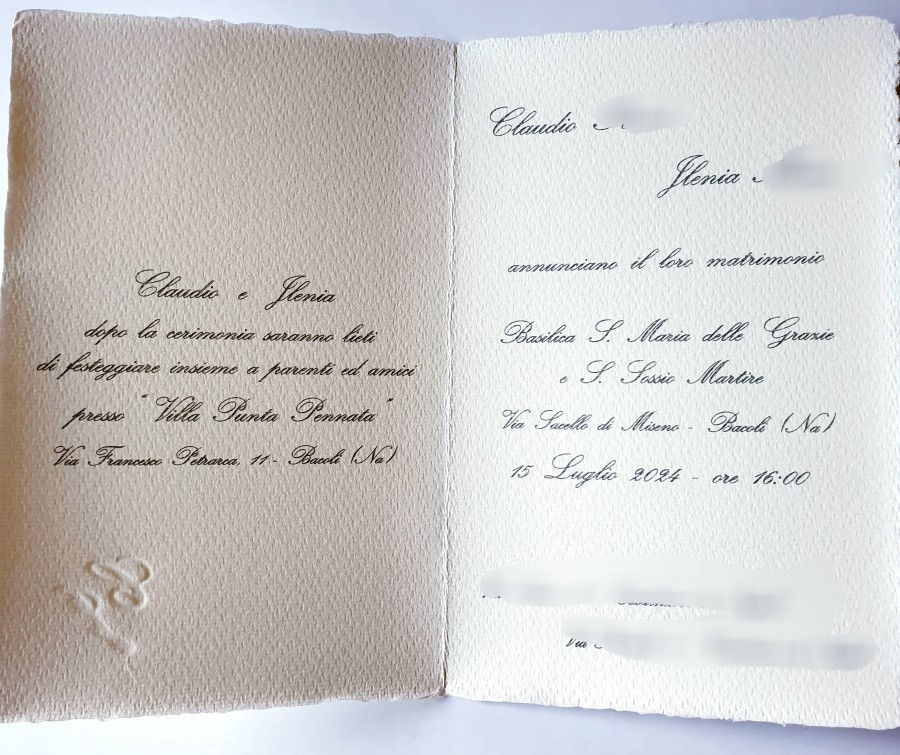 Claudio e Ilenia
dopo la cerimonia saranno lieti
di festeggiare insieme a parenti ed amici
presso "Villa Punta Pennata"
Via Francesco Petrarca, 11 - Bacoli (Na)
Claudio
Ilenia
annunciano il loro matrimonio
Basilica S. Maria delle Grazie
e S. Sossio Martire
Via Sacello di Miseno - Bacoli (Na)
15 Luglio 2024 - ore 16:00
Via